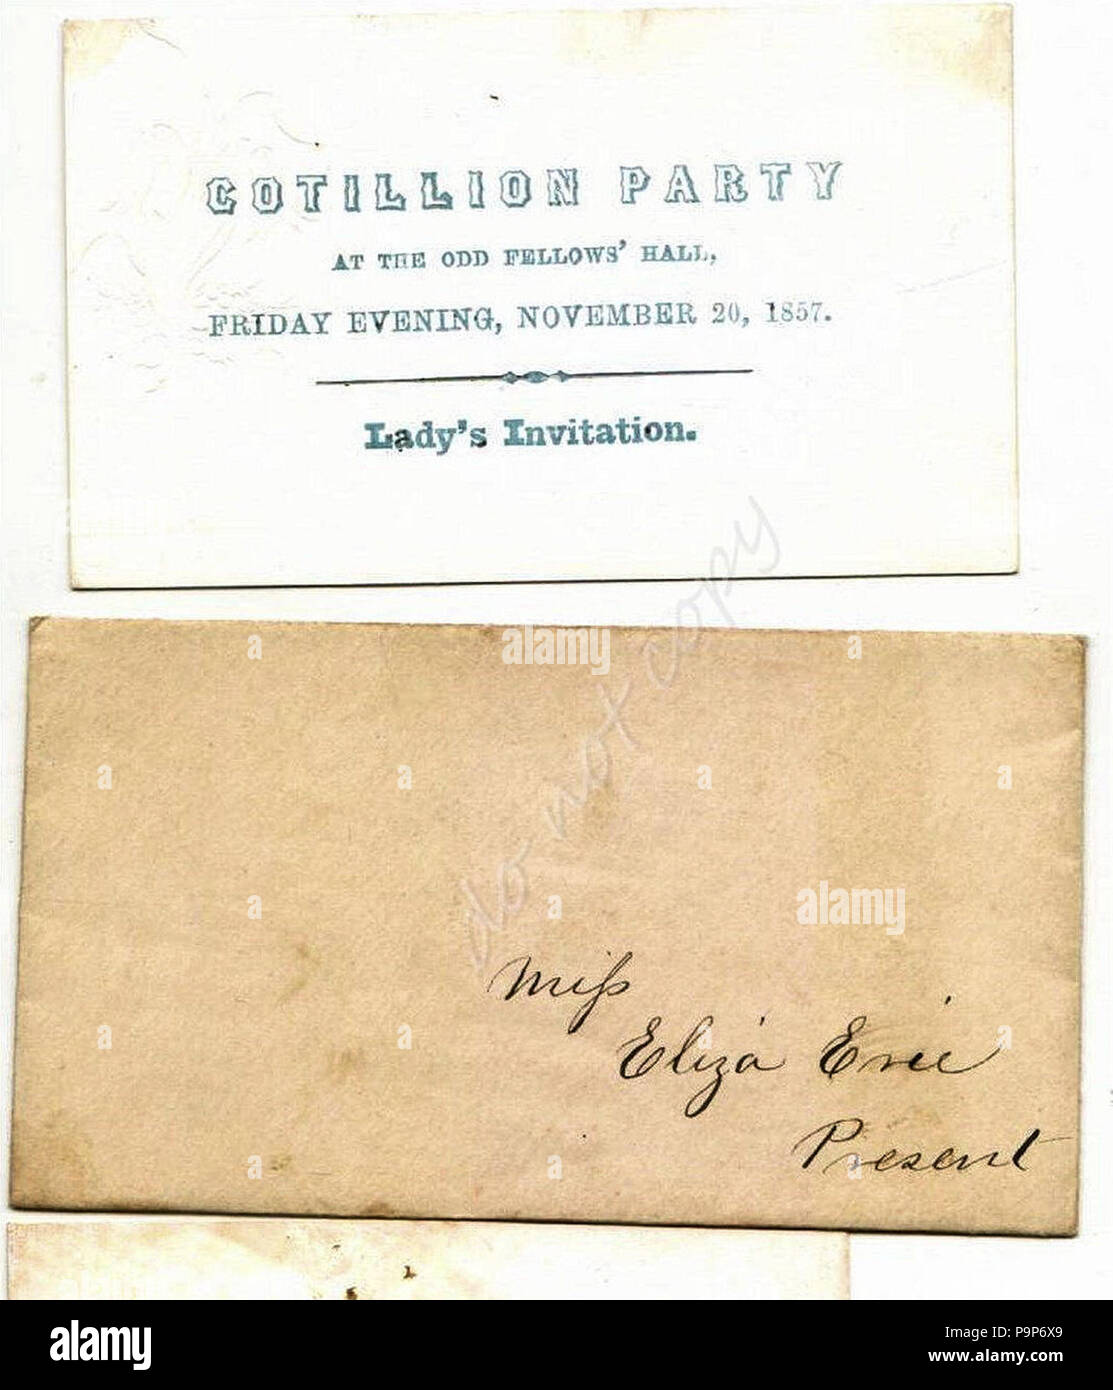 COTILLION PARTY
AT THE ODD FELLOWS' HALL,
FRIDAY EVENING, NOVEMBER 20, 1857.
Lady's Invitation.
do not copy
a alamy a
a a a a
a a alamy
Miss
Eliza Erie
a a a a
Present
a a
alamy
Image ID: P9P6X9
www.alamy.com